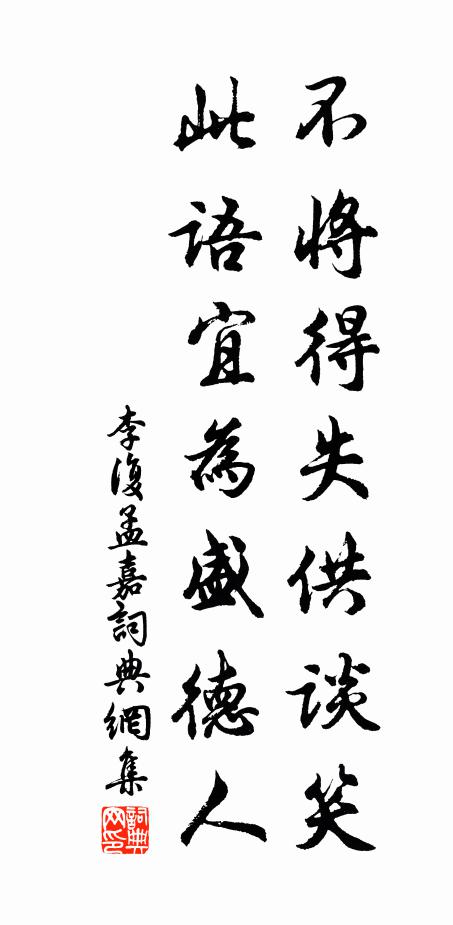 不將得失供談笑
此語宜為盛德人
李復孟嘉詞典網集
詞典網印